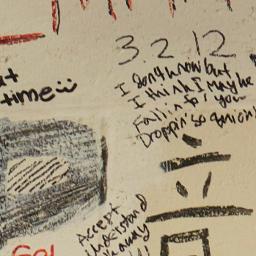 3.2.12
I don't know but
I think I maybe
Fallin for you
Droppin so quick
time
Accept
understand
away
Go!